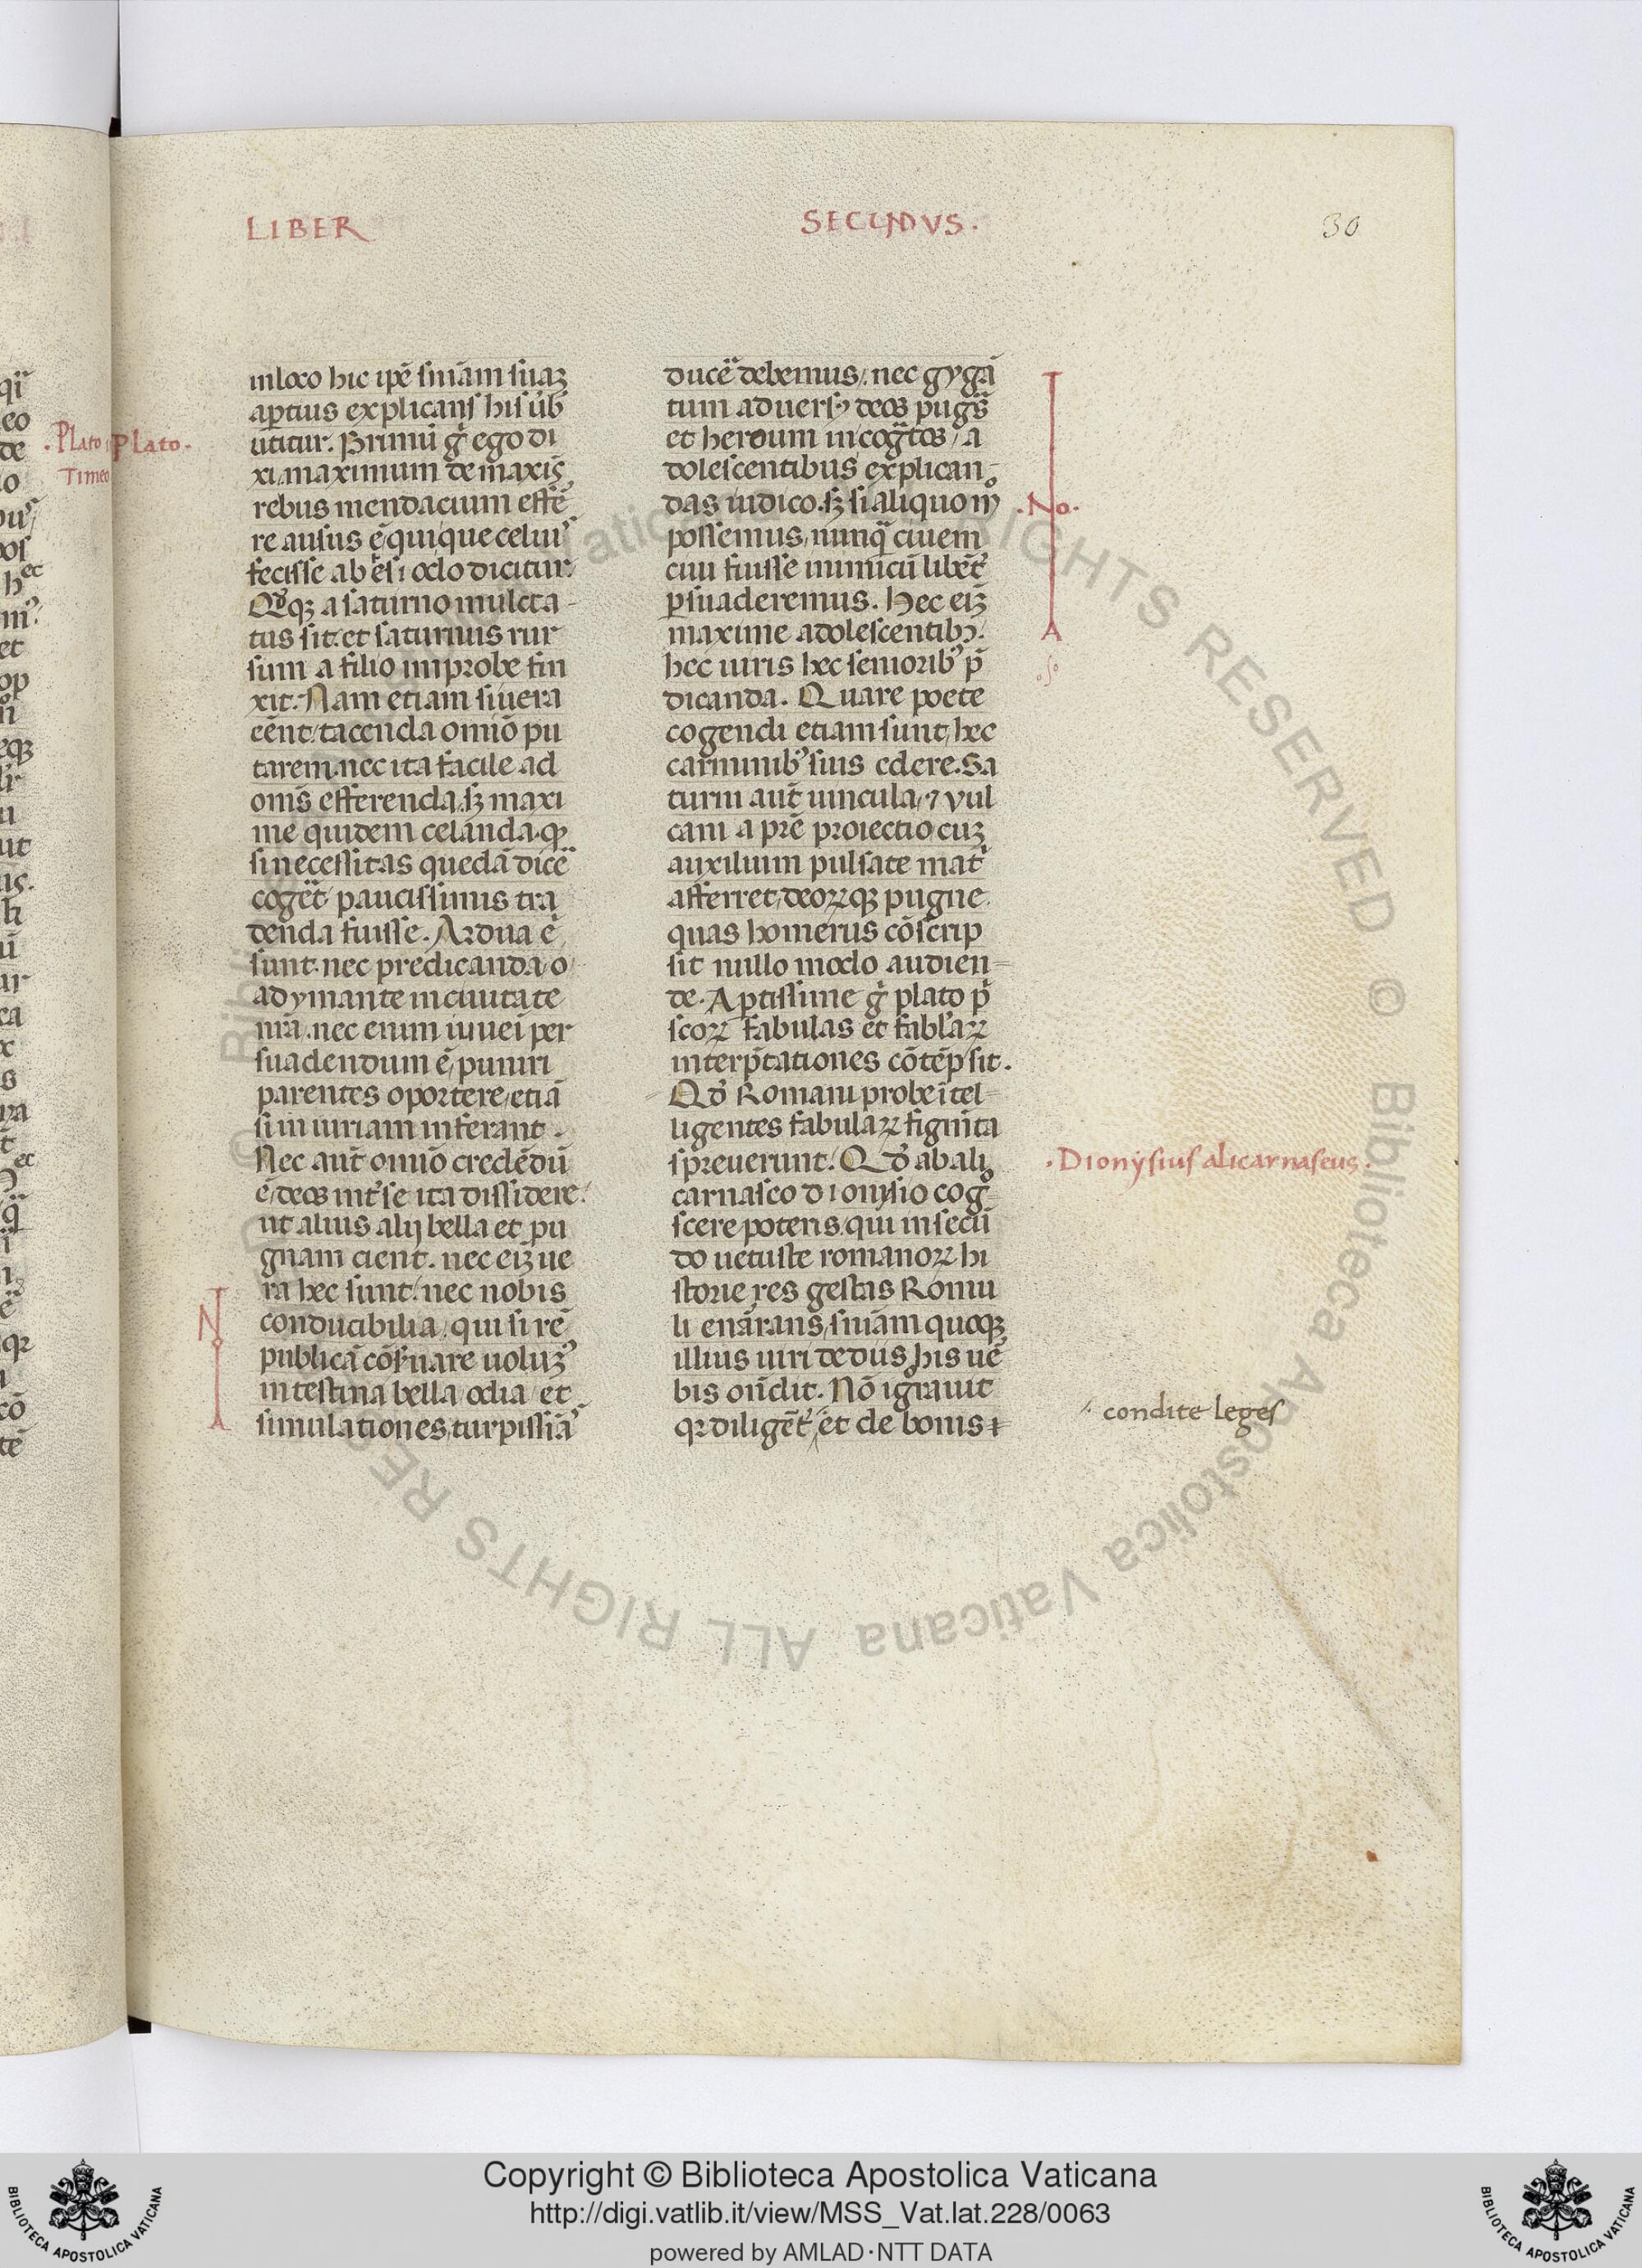 LIBER
SECUNDVS.
30
Plato
Timeo
Plato.
in loco hic ipē snīam suaꝫ
aptius explicans his ūb'
utitur. Primū g̊ ego di
xi maximum de maxīs
rebus mendacium effer̄
re ausus ē qui que celuꝫ
fecisse ab esiodo dicitur.
Qd'qꝫ a saturno mulcta-
tus sit et saturnus rur
sum a filio improbe fin
xit. Nam etiam si uera
eēnt tacenda omīo pu
tarem nec ita facile ad
omīs efferenda sꝫ maxi
me quidem celanda qꝫ
si necessitas quedā dice
coget paucissimis tra
denda fuisse. Ardua ē
sunt nec predicanda o
adymante in ciuitate
nrā nec enim iuueī per
suadendum ē puniri
parentes oportere etiā
si iniuriam inferant.
Nec aut̄ omīo credēdū
ē deos int' se ita dissidere
ut alius alij bella et pu
gnam cient. nec eiꝫ ue
ra hec sunt nec nobis
conducibilia qui si rē
publicā cōs'uare uolum'
intestina bella odia et
simulationes turpissīā
ducē debemus nec gygā
tum aduers' deos pugs̄
et heroum incogitos a
dolescentibus explican-
das iudico. sꝫ si aliquo mº
possemus nunq̄ ciuem
ciui fuisse inimicū liben̄t
ꝑsuaderemus. Hec eiꝫ
maxime adolescentibꝫ
hec uiris hec seniorib' p̄
dicanda. Quare poete
cogendi etiam sunt hec
carminib' suis edere. Sa
turni aut̄ uincula ⁊ vul
cani a prē proiectio cuꝫ
auxilium pulsate mat'
afferret deoꝝqꝫ pugne
quas homerus cōscrip
sit nullo modo audien-
de. Aptissime g̊ plato p̄
scoꝝ fabulas et fabl'aꝝ
interp̄tationes cōtēpsit.
Qd' Romani probe ītel-
ligentes fabulaꝝ figm̄ta
spreuerunt. Qd' ab ali
carnasco dionysio cog
scere poteris qui in secū
do uetuste romanoꝝ hi
storie res gestas Romu
li enārans sniām quoqꝫ
illius uiri de diis his uē
bis oñdit. Nō ig̊rauit
qꝫ diligēt' et de bonis ⁊
No.
A
Dionysius alicarnaseus.
condite leges
N
Copyright © Biblioteca Apostolica Vaticana
http://digi.vatlib.it/view/MSS_Vat.lat.228/0063
powered by AMLAD·NTT DATA
BIBLIOTECA APOSTOLICA VATICANA
BIBLIOTECA APOSTOLICA VATICANA